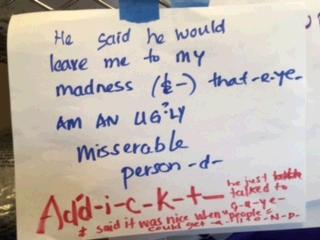 He said he would
leave me to my
madness (&-) that-e-ye-
AM AN UGLY
Misserable
person-d-
Add-i-c-k-t-
he just
talked to
said it was nice when "people s
could get a